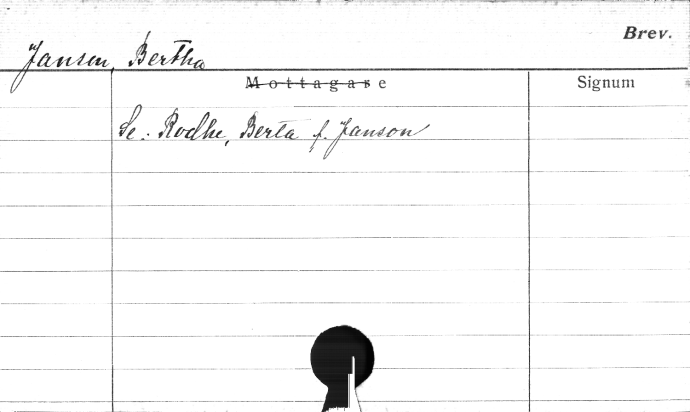 Brev.
Janson, Bertha
Mottagare Signum
Se: Rodhe, Berta f. Janson